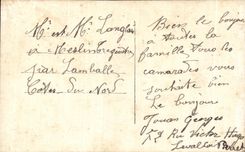 Mr et Me Langlais
a Meslin Trégenestre
par Lamballe
Côtes du Nord
Bien le bonjour
a toutes la
famille Tous les
camarades vous
souhaite bien
Le bonjour
Jouan Georges
Rue Victor Hugo
Levallois Perret